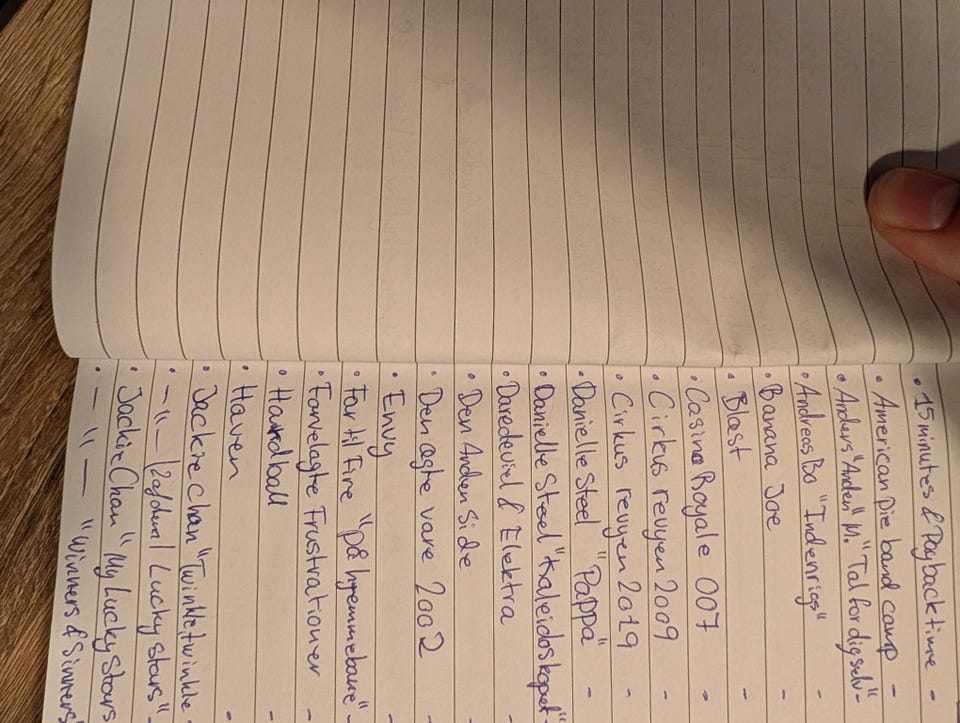 • 15 minutes & Paybacktime -
• American Pie band camp -
• Anders "Anden" M. "Tal for dig selv" -
• Andreas Bo "Indenrigs" -
• Banana Joe -
• Blast -
• Casino Royale 007 -
• Cirkus revyen 2009 -
• Cirkus revyen 2019 -
• Danielle Steel "Pappa" -
• Danielle Steel "Kaleidoskopet" -
• Daredevil & Elektra -
• Den Anden Side
• Den ægte vare 2002 -
• Envy -
• Far til Fire "på hjemmebane" -
• Farvelagte Frustrationer -
• Hardball -
• Haven -
• Jackie Chan "Twinkle, twinkle -
• — " — Lucky Stars" -
• Jackie Chan "My Lucky Stars
• — " — "Winners & Sinners"